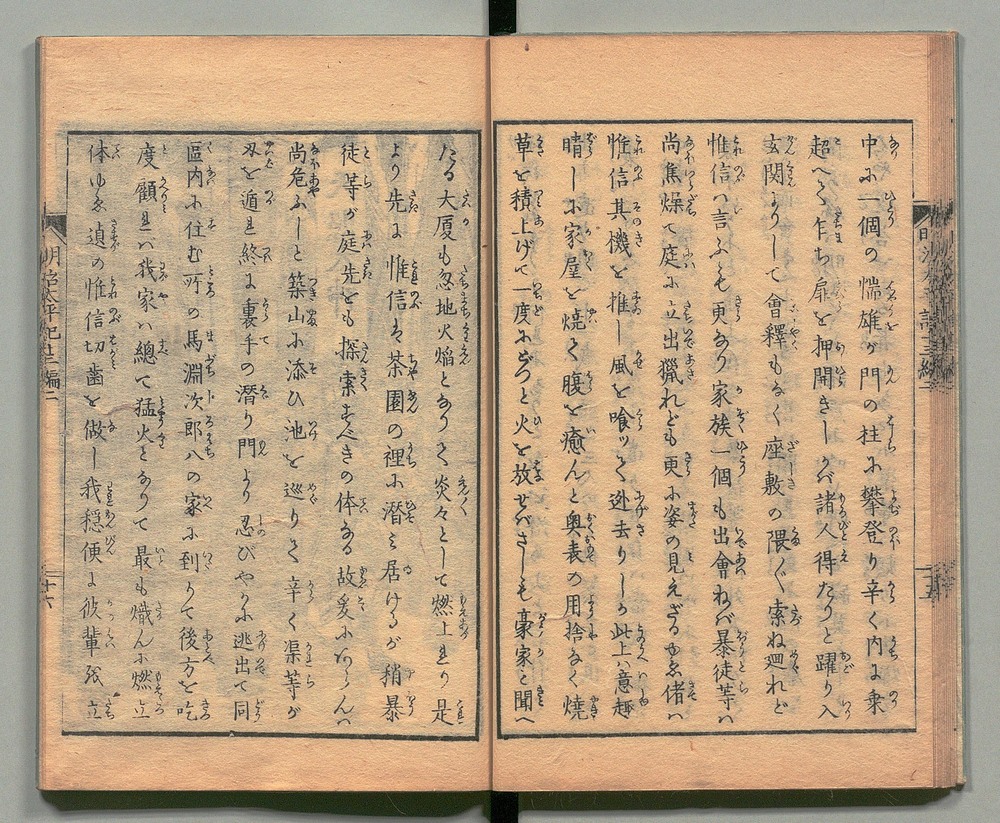 中に一個の惴雄が門の柱に攀登り辛く内に乗
超へて乍ち扉を押開きしかバ諸人得たりと躍り入
玄関よりして會釋もなく座敷の隈ぐ索ね廻れど
惟信ハ言ふも更なり家族一個も出會ねバ暴徒等ハ
尚焦燥て庭に立出獵れども更に姿の見えざるゆゑ偖ハ
惟信其機を推し風を喰ッて迯去りしか此上ハ意趣
晴しに家屋を焼く腹を癒んと奥表の用捨なく焼
草を積上げて一度にどつと火を放せバさしも豪家と聞へ
たる大厦も忽地火焔となりて炎々として燃上れり是
より先に惟信ハ茶園の裡に潜み居けるが稍暴
徒等が庭先をも探索すべきの体なる故爰にゐらんハ
尚危ふしと築山に添ひ池を巡りて辛く渠等が
及を遁れ終に裏手の潜り門より忍びやかに迯出て同
區内に住む所の馬淵次郎八の家に到りて後方を吃
度顧れバ我家ハ總て猛火となりて最も熾んに燃立
体ゆゑ遉の惟信切歯を做し我穏便に彼輩を立
明治太平記十三編二
十五
十六